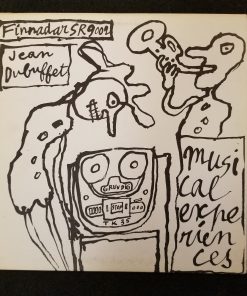 Finnadar SR 9002
Jean
Dubuffet
GRUNDIG
STOP
TK 35
musi
cal
expe
rien
ces